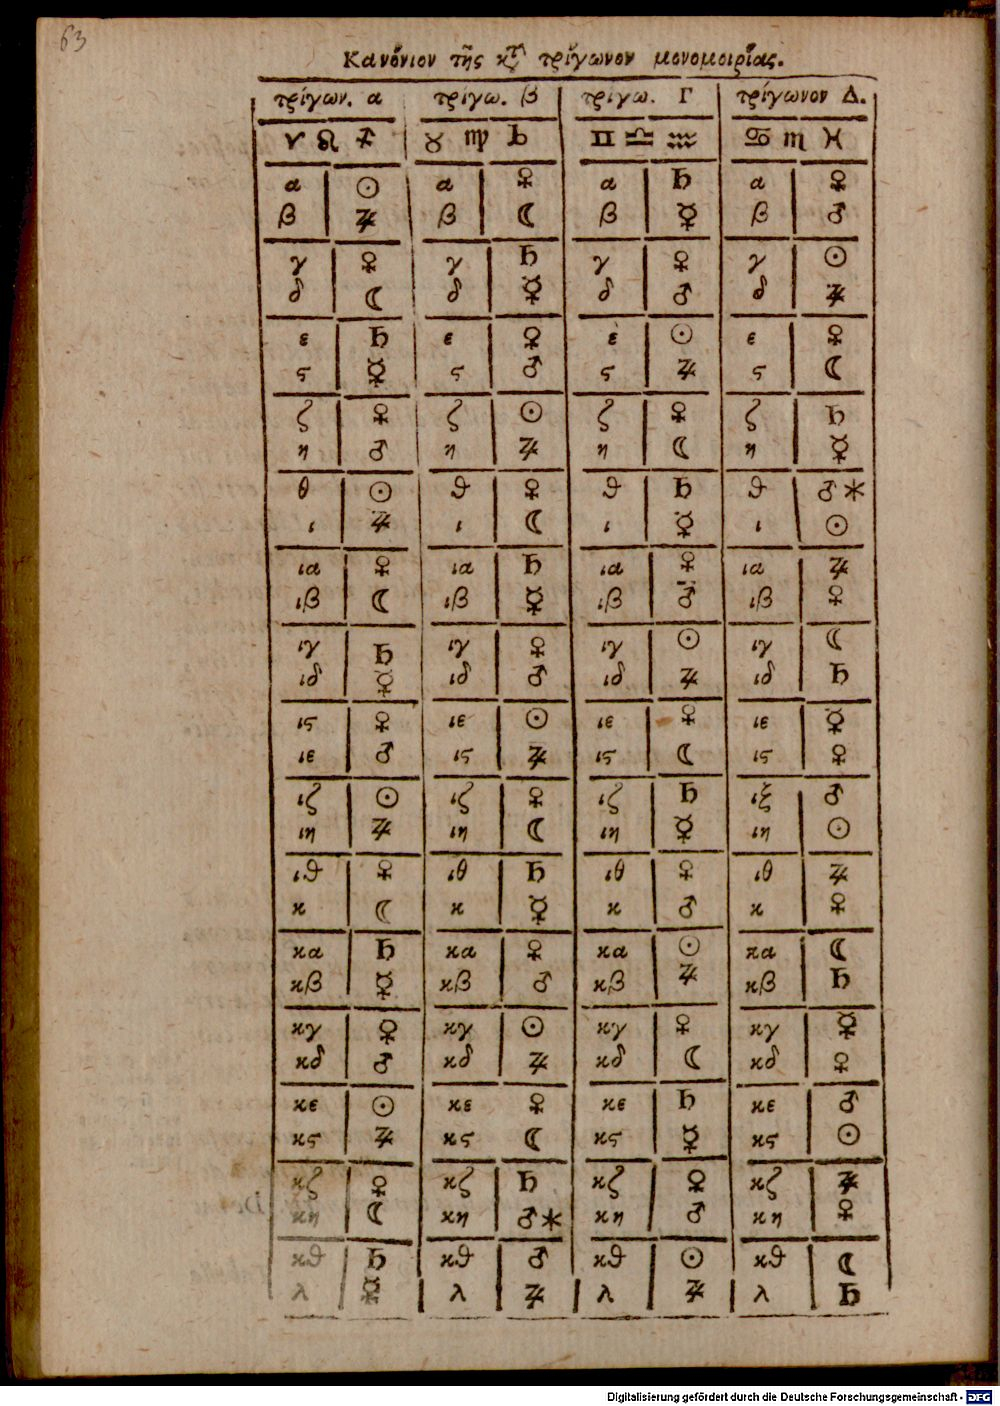 63
Κανόνιον τῆς κτ τρίγωνον μονομοιρίας.
τρίγων. α τρίγω. β τρίγω. Γ τρίγωνον Δ.
♈ ♌ ♐ ♉ ♍ ♑ ♊ ♎ ♒ ♋ ♏ ♓
α ☉ α ♀ α ♄ α ♀
β ♃ β ☾ β ☿ β ♂
γ ♀ γ ♄ γ ♀ γ ☉
δ ☾ δ ☿ δ ♂ δ ♃
ε ♄ ε ♀ ε ☉ ε ♀
ϛ ☿ ϛ ♂ ϛ ♃ ϛ ☾
ζ ♀ ζ ☉ ζ ♀ ζ ♄
η ♂ η ♃ η ☾ η ☿
θ ☉ ϑ ♀ ϑ ♄ ϑ ♂ *
ι ♃ ι ☾ ι ☿ ι ☉
ια ♀ ια ♄ ια ♀ ια ♃
ιβ ☾ ιβ ☿ ιβ ♂ ιβ ♀
ιγ ♄ ιγ ♀ ιγ ☉ ιγ ☾
ιδ ☿ ιδ ♂ ιδ ♃ ιδ ♄
ιϛ ♀ ιε ☉ ιε ♀ ιε ☿
ιε ♂ ιϛ ♃ ιϛ ☾ ιϛ ♀
ιζ ☉ ιζ ♀ ιζ ♄ ιξ ♂
ιη ♃ ιη ☾ ιη ☿ ιη ☉
ιϑ ♀ ιθ ♄ ιθ ♀ ιθ ♃
κ ☾ κ ☿ κ ♂ κ ♀
κα ♄ κα ♀ κα ☉ κα ☾
κβ ☿ κβ ♂ κβ ♃ κβ ♄
κγ ♀ κγ ☉ κγ ♀ κγ ☿
κδ ♂ κδ ♃ κδ ☾ κδ ♀
κε ☉ κε ♀ κε ♄ κε ♂
κϛ ♃ κϛ ☾ κϛ ☿ κϛ ☉
κζ ♀ κζ ♄ κζ ♀ κζ ♃
κη ☾ κη ♂ * κη ♂ κη ♀
κϑ ♄ κϑ ♂ κϑ ☉ κϑ ☾
λ ☿ λ ♃ λ ♃ λ ♄
Digitalisierung gefördert durch die Deutsche Forschungsgemeinschaft - DFG